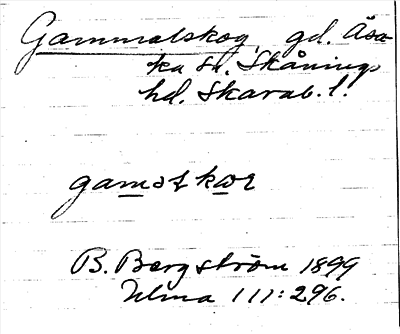 Gammalskog, gd. Åsa-
ka sn. Skånings
hd. Skarab. l.
gamalskog
B. Bergström 1899
Ulma 111:296.